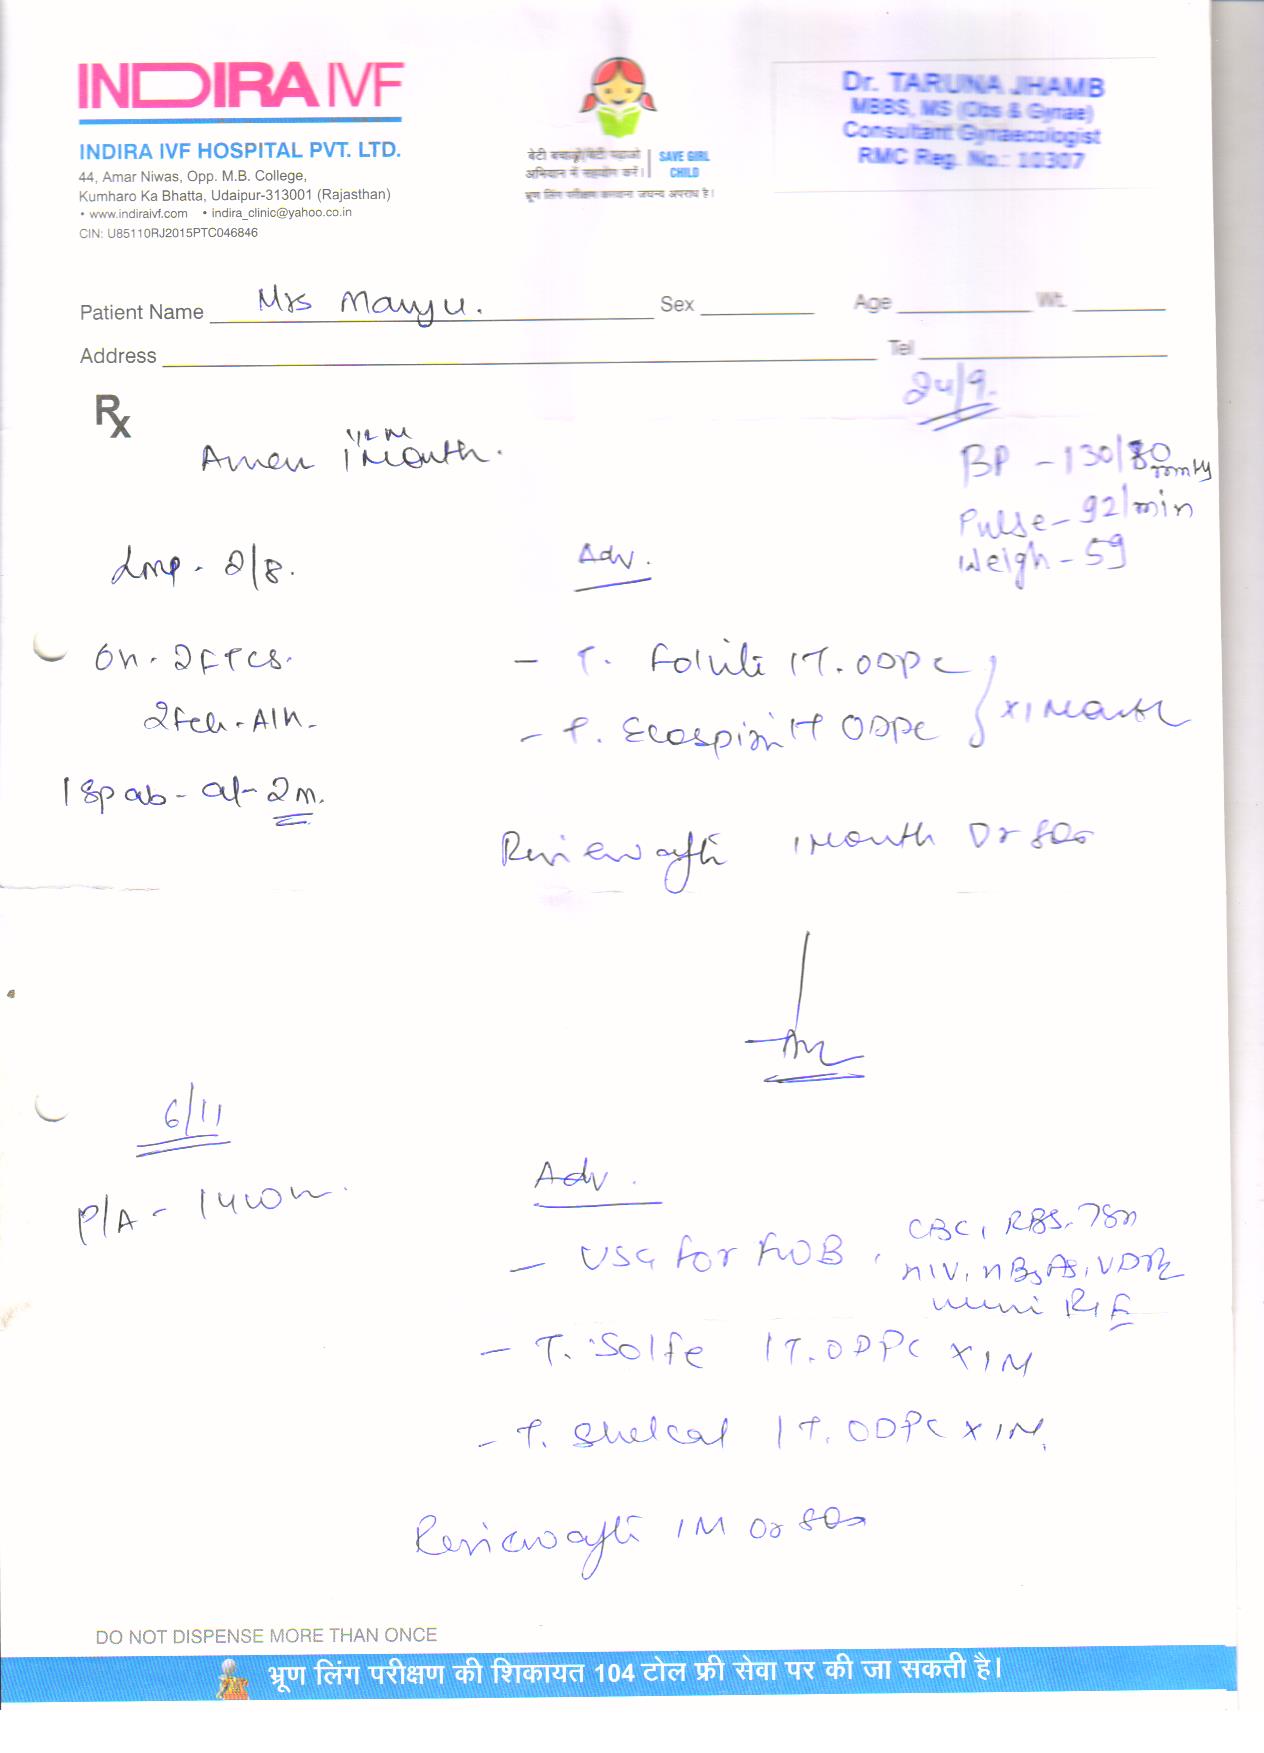 INDIRA IVF
INDIRA IVF HOSPITAL PVT. LTD.
44, Amar Niwas, Opp. M.B. College,
Kumharo Ka Bhatta, Udaipur-313001 (Rajasthan)
• www.indiraivf.com • indira_clinic@yahoo.co.in
CIN: U85110RJ2015PTC046846
बेटी बचाओ/बेटी पढ़ाओ
अभियान में सहयोग करें।
SAVE GIRL
CHILD
भ्रूण लिंग परीक्षण करवाना जघन्य अपराध है।
Dr. TARUNA JHAMB
MBBS, MS (Obs & Gynae)
Consultant Gynaecologist
RMC Reg. No.: 10307
Patient Name Mrs Manju. Sex Age Wt.
Address Tel
24/9.
Rx
Amen 1 Month.
1/2 M
BP - 130/80 mmHg
Pulse - 92/min
Weigh - 59
Lmp - 2/8.
Adv.
OH - 2FTCS.
2Feh - A/H -
1 Spab - at - 2m.
- T. Folvite 1T. ODPC
- T. Ecosprin 1T ODPC
x 1 Month
Review after 1 Month Or SOS
6/11
P/A - 14wn
Adv.
- USG for FWB, CBC, RBS, TSH
HIV, HBsAg, VDRL
R/E
- T. Solfe 1T. ODPC x 1M
- T. Shelcal 1T. ODPC x 1M.
Review after 1M or SOS
DO NOT DISPENSE MORE THAN ONCE
भ्रूण लिंग परीक्षण की शिकायत 104 टोल फ्री सेवा पर की जा सकती है।